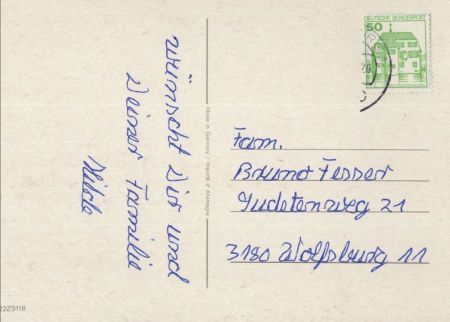 wünscht Dir und
Deiner Familie
Made in Germany / Importé d'Allemagne
DEUTSCHE BUNDESPOST
50
Fam.
Bruno Fesser
Sudetenweg 21
3180 Wolfsburg 11
22Z3118